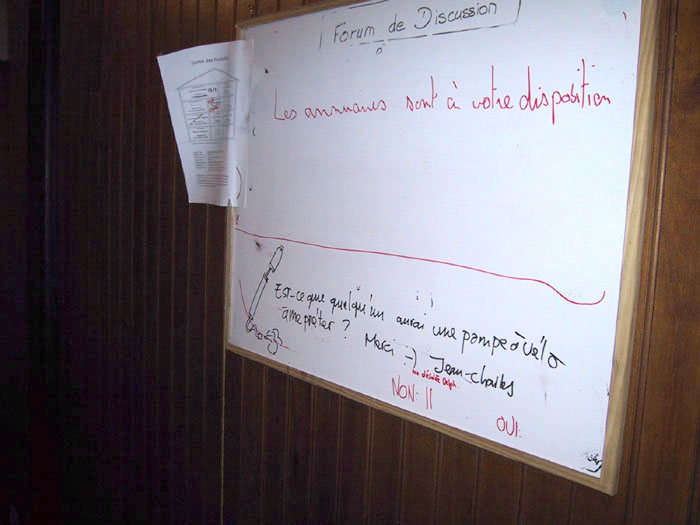 Forum de Discussion
Les annuaires sont à votre disposition
Est-ce que quelqu'un aurai une pompe à vélo
à me prêter ? Merci :-) Jean-Charles
NON: ||
OUI: